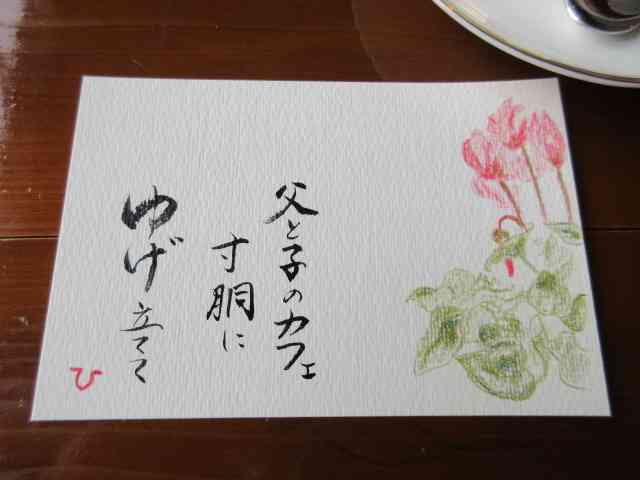 父と子のカフェ
寸胴に
ゆげ立てて
ひ